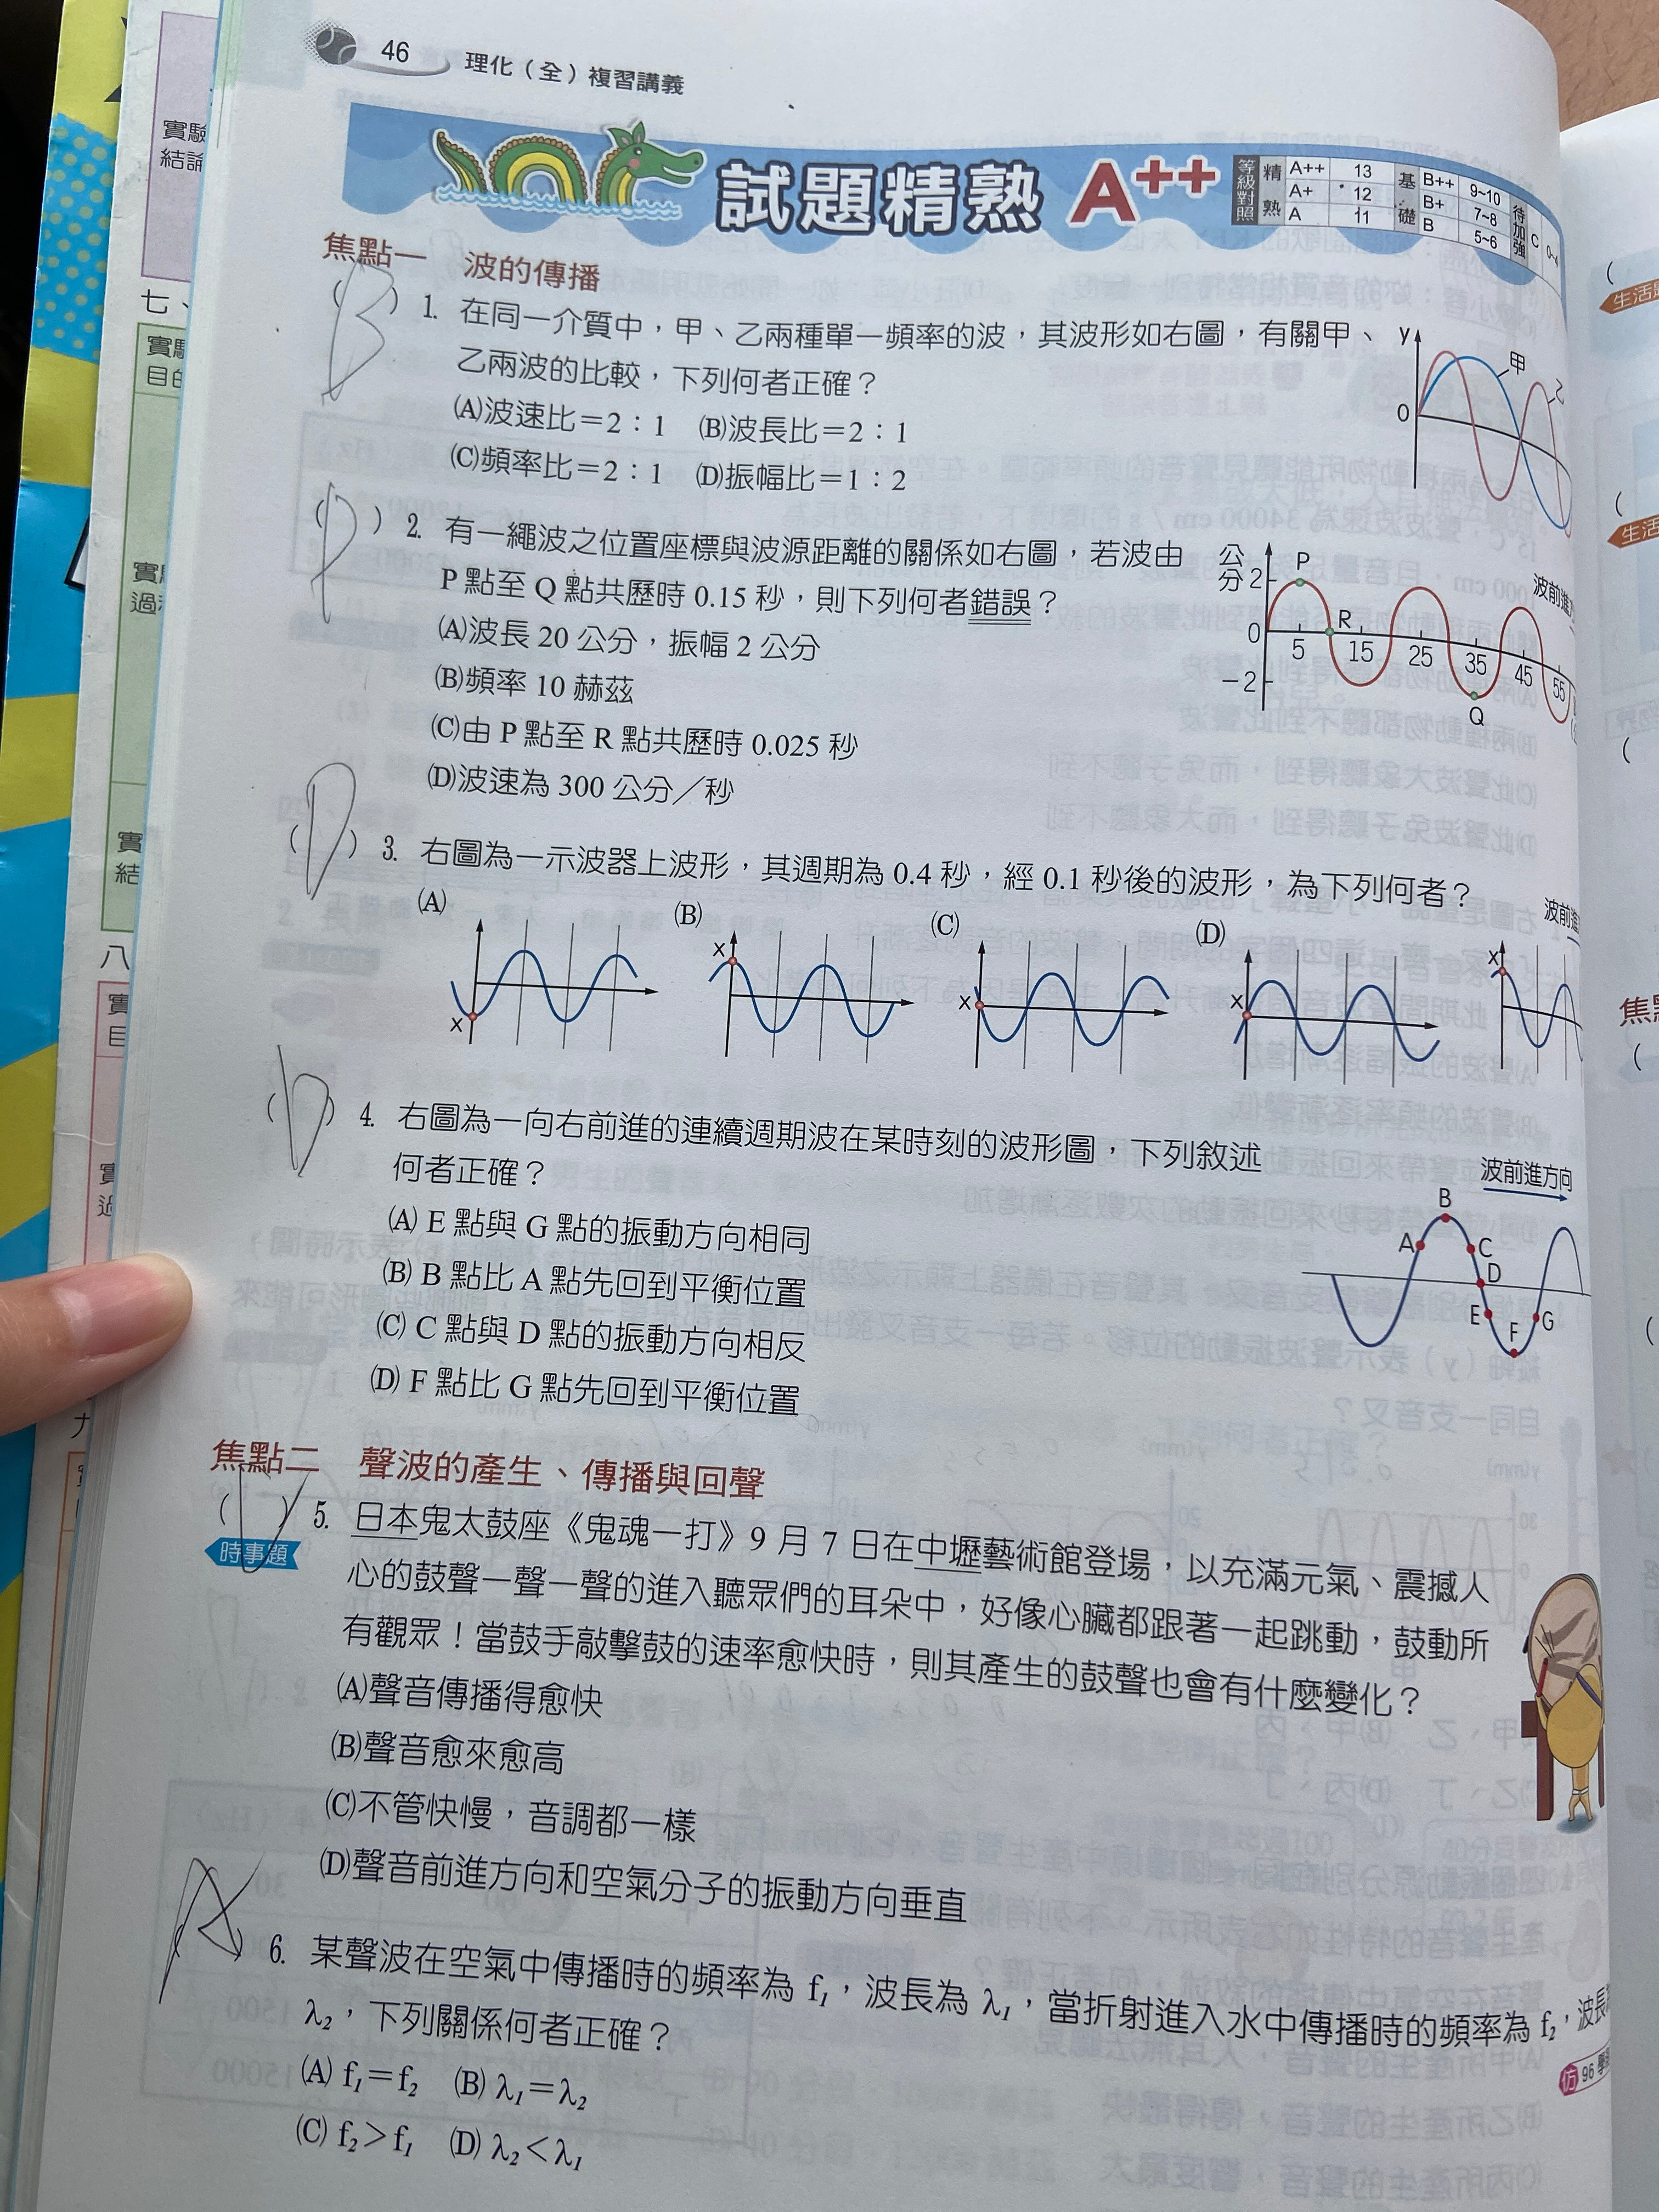 46 理化（全）複習講義
試題精熟 A++
等級對照 精熟 A++ 13 A+ 12 A 11 基礎 B++ 9~10 B+ 7~8 B 5~6 待加強 C 0~4
焦點一 波的傳播
(B) 1. 在同一介質中，甲、乙兩種單一頻率的波，其波形如右圖，有關甲、
乙兩波的比較，下列何者正確？
(A)波速比＝2：1 (B)波長比＝2：1
(C)頻率比＝2：1 (D)振幅比＝1：2
y 甲 乙
0
(D) 2. 有一繩波之位置座標與波源距離的關係如右圖，若波由
P 點至 Q 點共歷時 0.15 秒，則下列何者錯誤？
(A)波長 20 公分，振幅 2 公分
(B)頻率 10 赫茲
(C)由 P 點至 R 點共歷時 0.025 秒
(D)波速為 300 公分／秒
公分 2 P 波前進
0 R
5 15 25 35 45 55
−2 Q
(D) 3. 右圖為一示波器上波形，其週期為 0.4 秒，經 0.1 秒後的波形，為下列何者？
(A) (B) (C) (D) 波前進
x x x x x
(D) 4. 右圖為一向右前進的連續週期波在某時刻的波形圖，下列敘述
何者正確？
(A) E 點與 G 點的振動方向相同
(B) B 點比 A 點先回到平衡位置
(C) C 點與 D 點的振動方向相反
(D) F 點比 G 點先回到平衡位置
波前進方向
B
A C
D
E G
F
焦點二 聲波的產生、傳播與回聲
(D) 5. 日本鬼太鼓座《鬼魂一打》9 月 7 日在中壢藝術館登場，以充滿元氣、震撼人
時事題
心的鼓聲一聲一聲的進入聽眾們的耳朵中，好像心臟都跟著一起跳動，鼓動所
有觀眾！當鼓手敲擊鼓的速率愈快時，則其產生的鼓聲也會有什麼變化？
(A)聲音傳播得愈快
(B)聲音愈來愈高
(C)不管快慢，音調都一樣
(D)聲音前進方向和空氣分子的振動方向垂直
(A) 6. 某聲波在空氣中傳播時的頻率為 f₁，波長為 λ₁，當折射進入水中傳播時的頻率為 f₂，波長
λ₂，下列關係何者正確？
仿 96
(A) f₁＝f₂ (B) λ₁＝λ₂
(C) f₂＞f₁ (D) λ₂＜λ₁